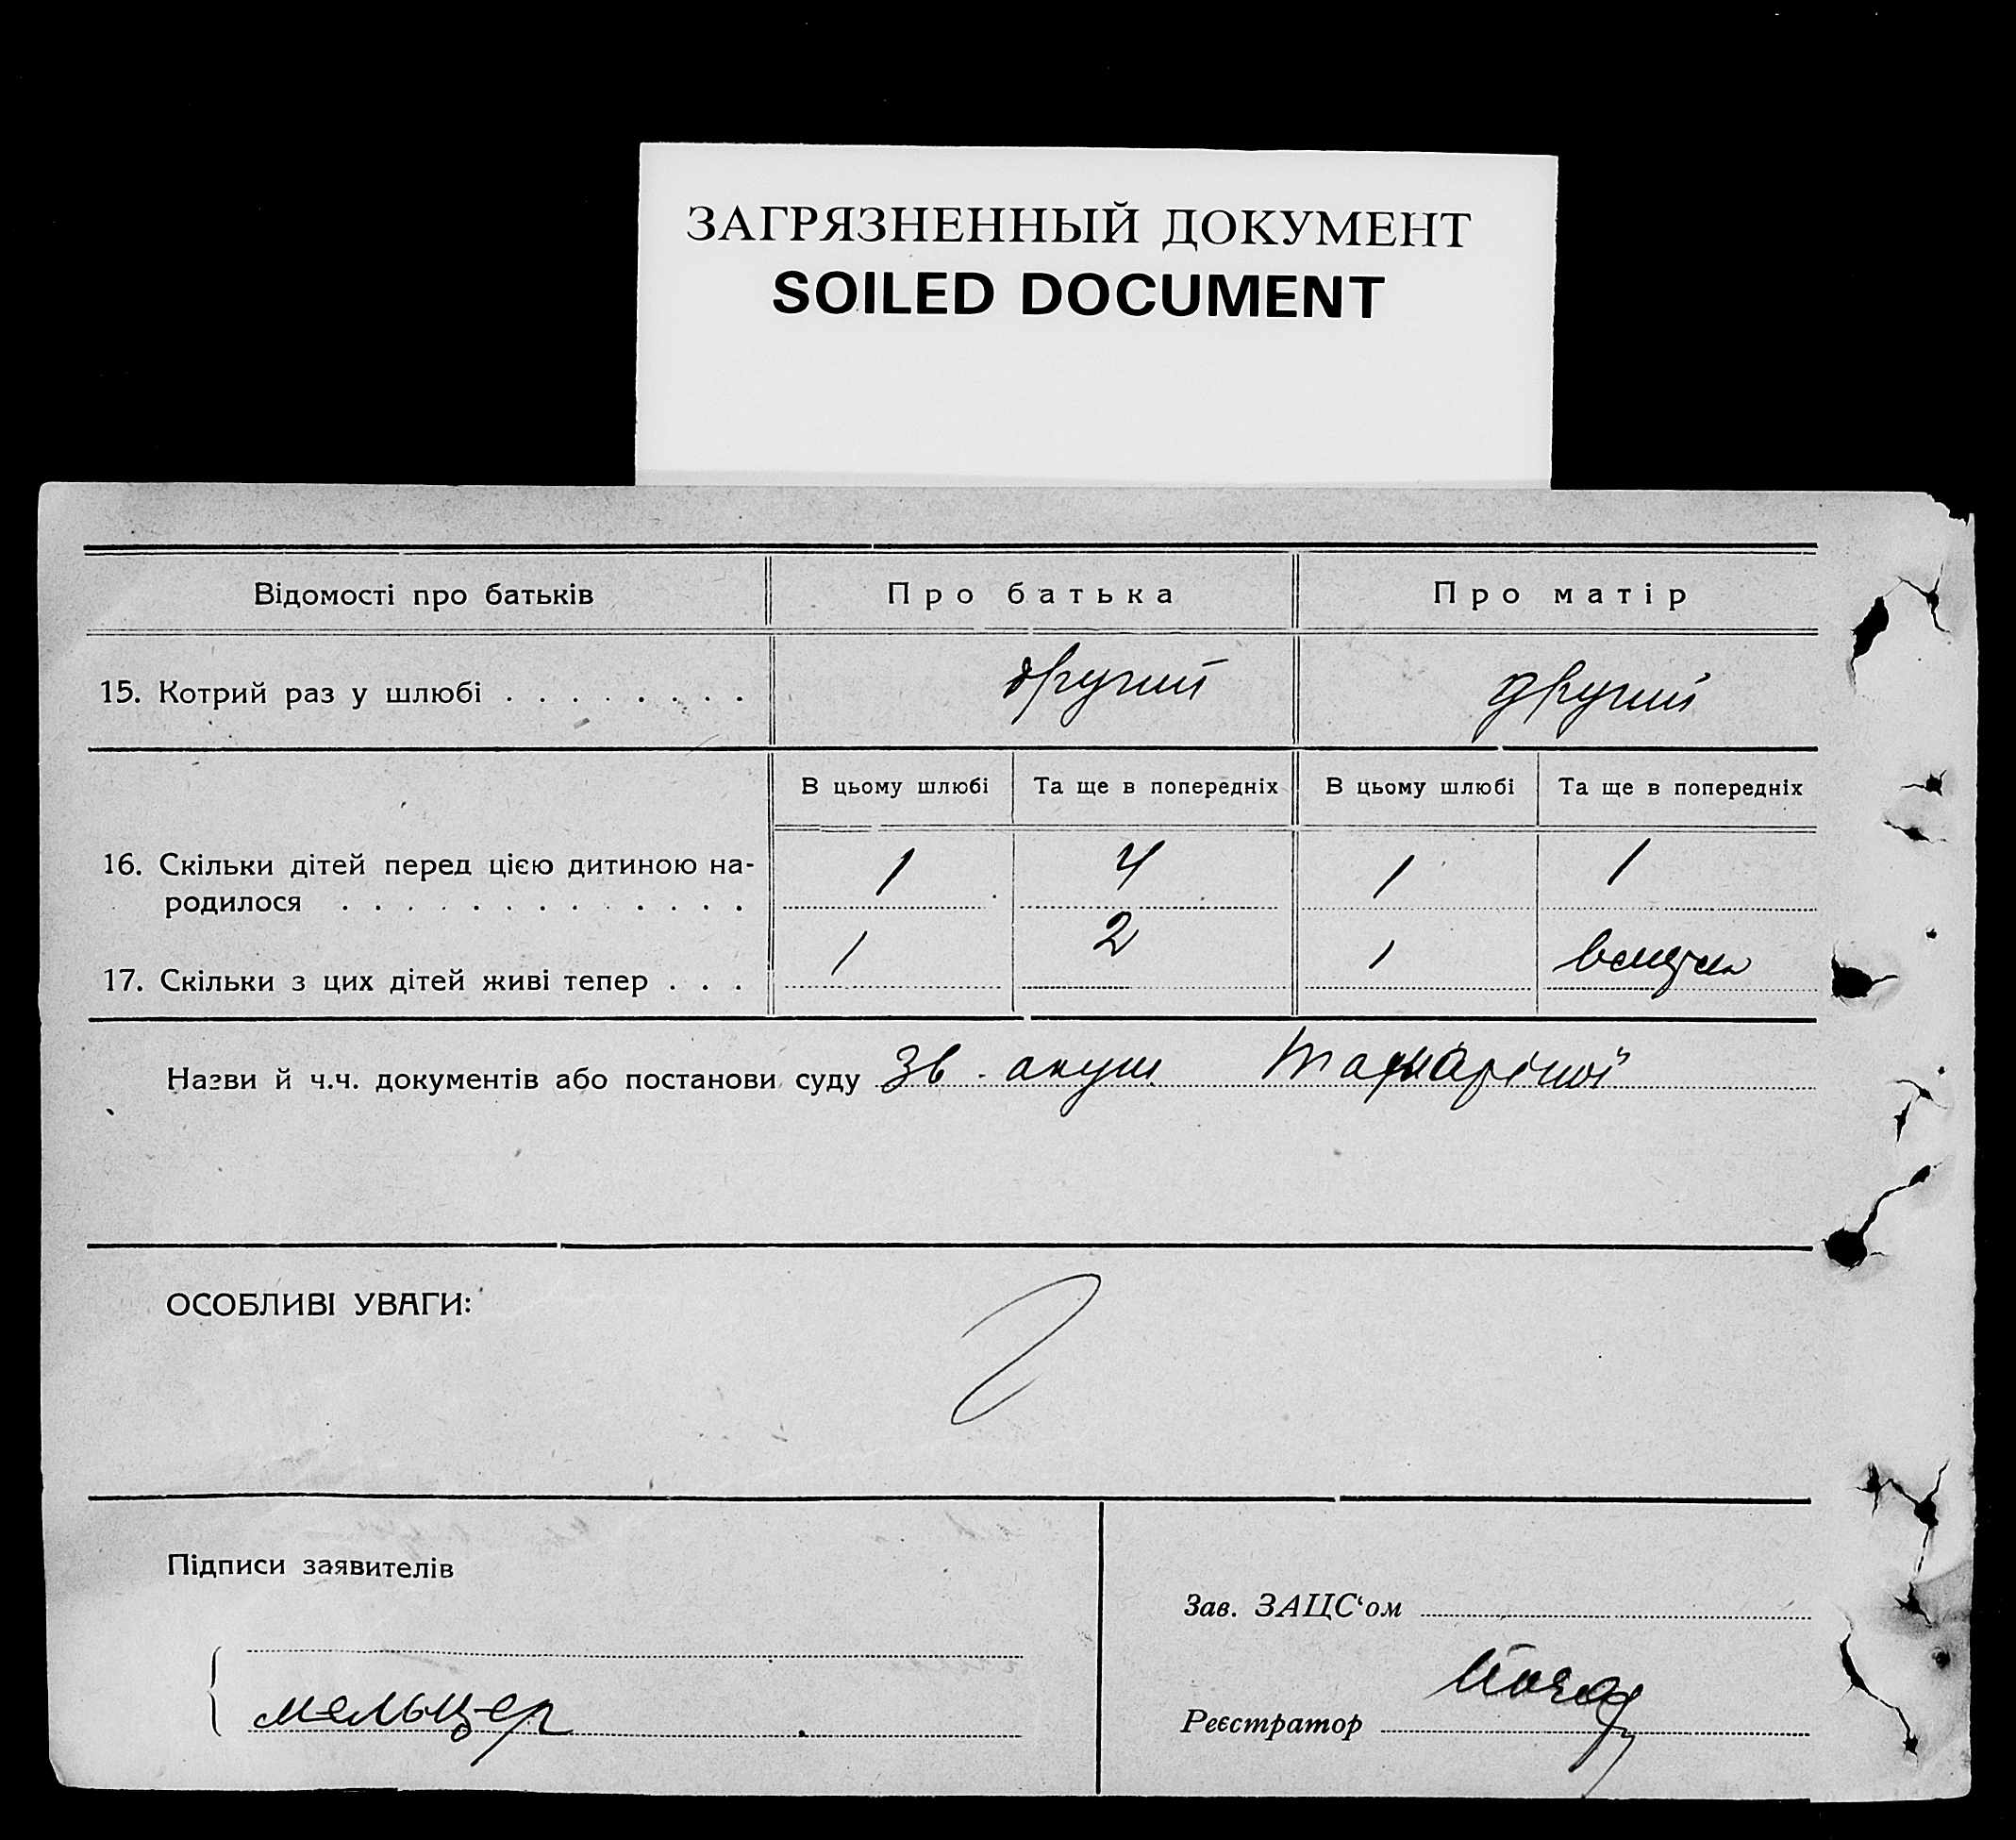 ЗАГРЯЗНЕННЫЙ ДОКУМЕНТ
SOILED DOCUMENT
Відомості про батьків Про батька Про матір
15. Котрий раз у шлюбі . . . . . . . . другий другий
В цьому шлюбі Та ще в попередніх В цьому шлюбі Та ще в попередніх
16. Скільки дітей перед цією дитиною на-
родилося . . . . . . . . . . . . . 1 4 1 1
17. Скільки з цих дітей живі тепер . . . 1 2 1
Назви й ч.ч. документів або постанови суду Зв. акуш
ОСОБЛИВІ УВАГИ:
Підписи заявителів
Зав. ЗАЦС‘ом
мельцер
Реєстратор